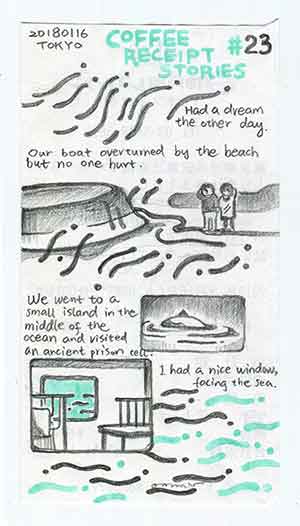 20180116
TOKYO
COFFEE
RECEIPT
STORIES
#23
Had a dream
the other day.
Our boat overturned by the beach
but no one hurt.
We went to a
small island in the
middle of the
ocean and visited
an ancient prison cell.
I had a nice window,
facing the sea.